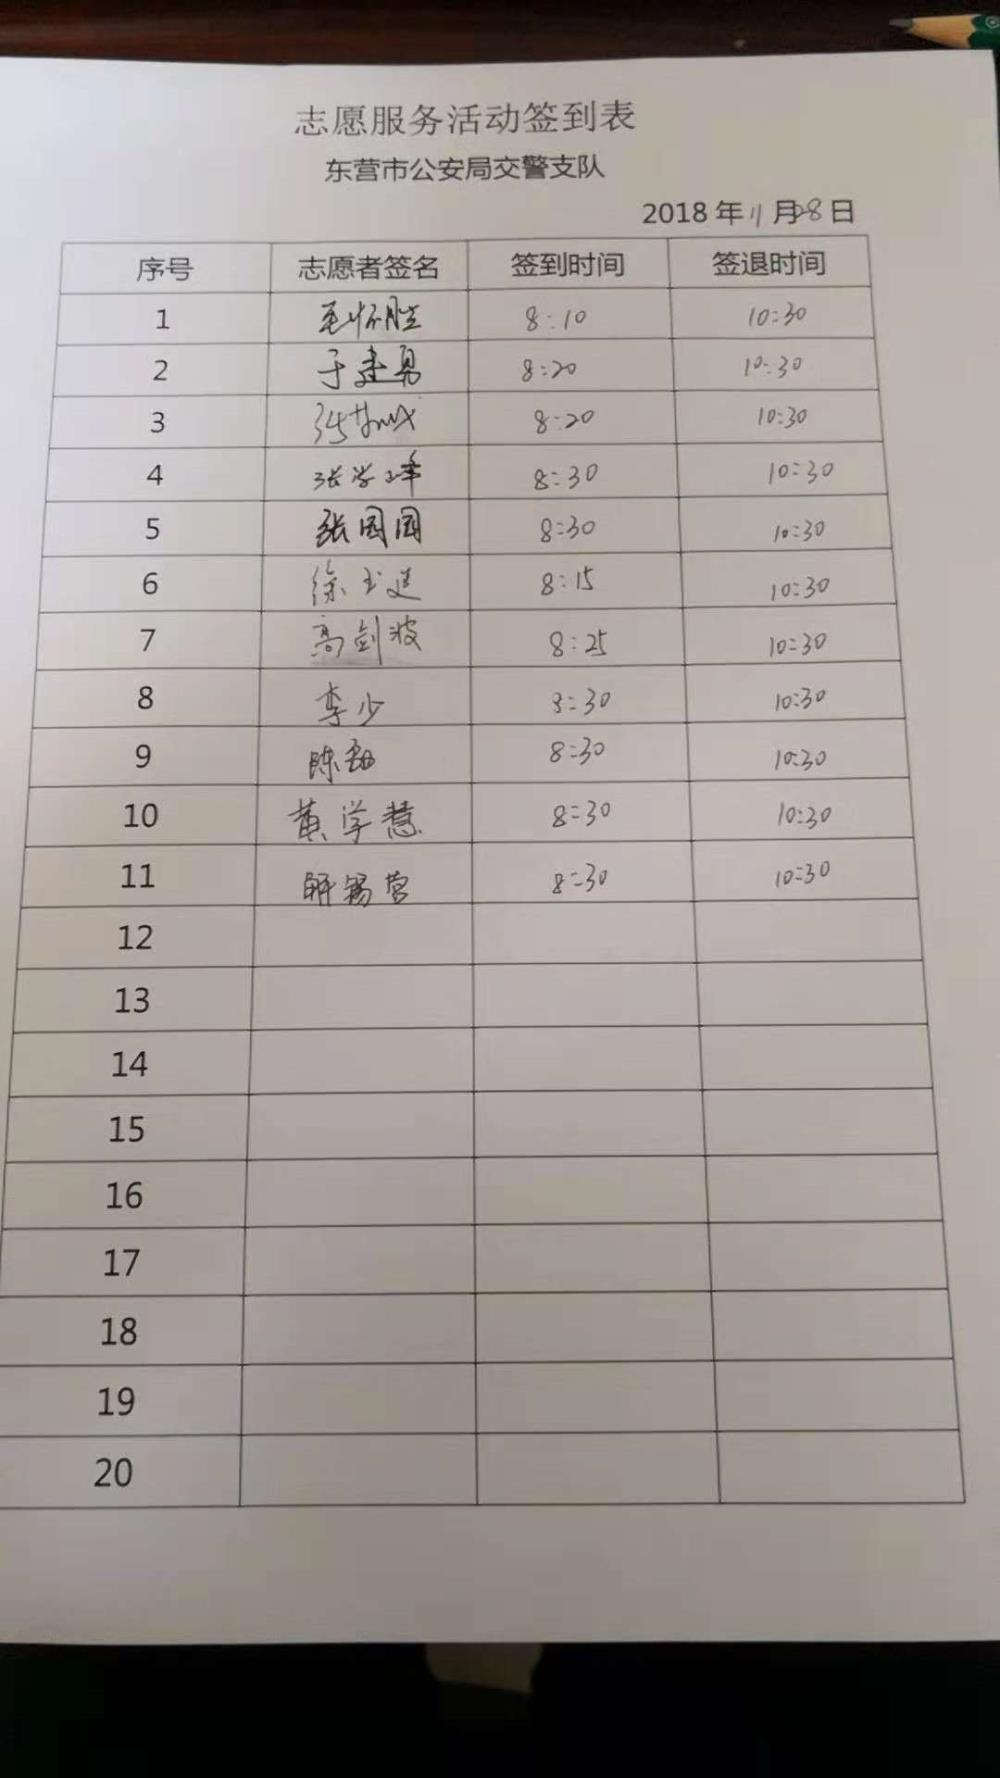 志愿服务活动签到表
东营市公安局交警支队
2018 年 11 月 28 日
序号 志愿者签名 签到时间 签退时间
1 毛怀胜 8:10 10:30
2 于建勇 8:20 10:30
3 8:20 10:30
4 张学峰 8:30 10:30
5 张国国 8:30 10:30
6 徐玉廷 8:15 10:30
7 高剑波 8:25 10:30
8 李少 8:30 10:30
9 陈磊 8:30 10:30
10 黄学慧 8:30 10:30
11 解锡营 8:30 10:30
12
13
14
15
16
17
18
19
20